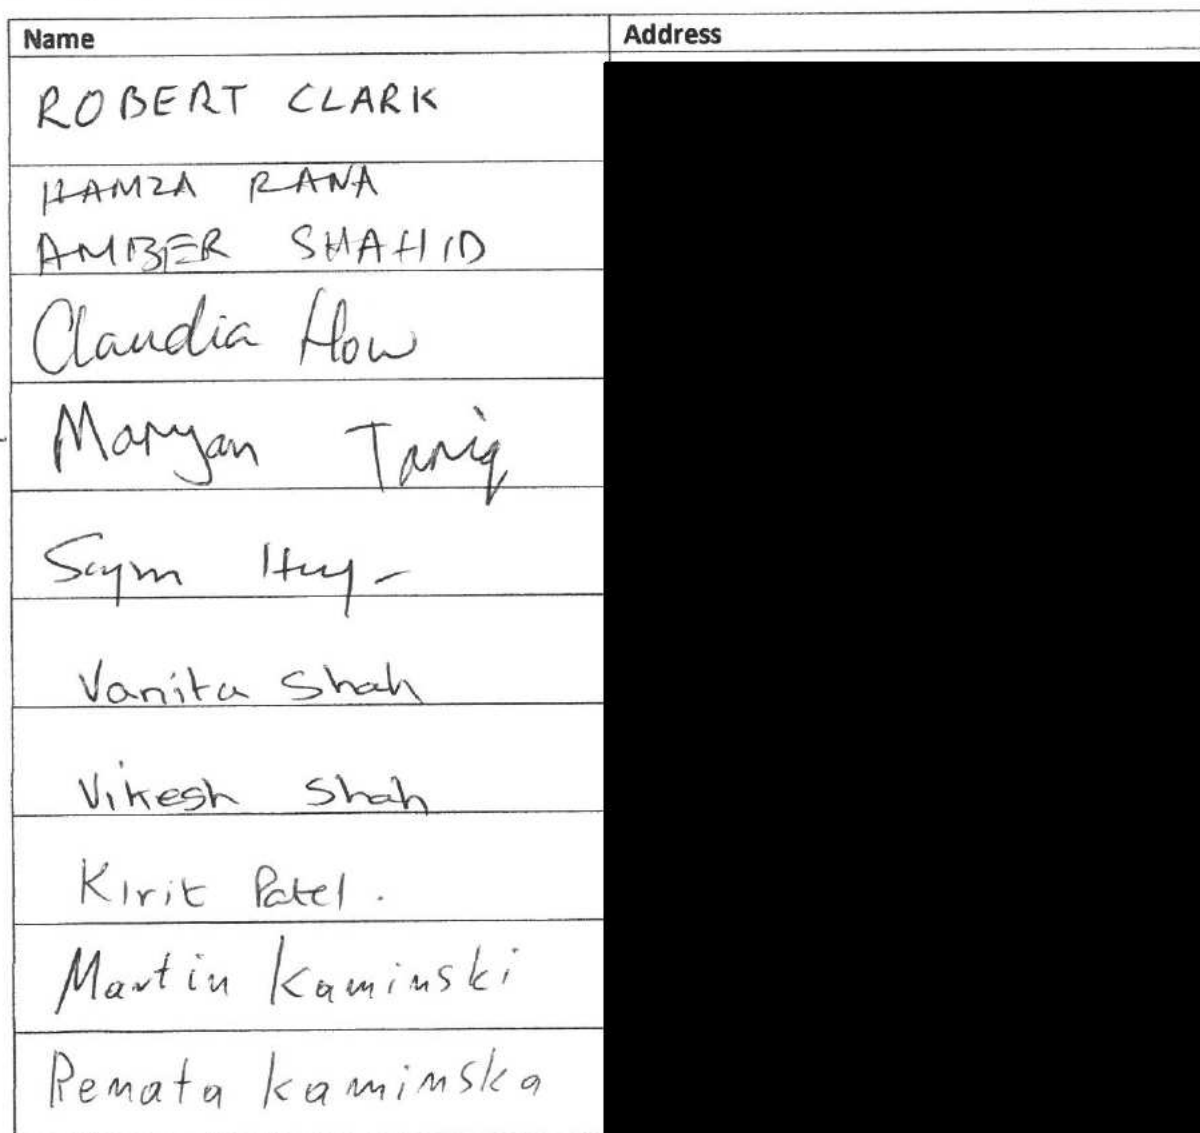 Name Address
ROBERT CLARK
HAMZA RANA
AMBER SHAHID
Claudia How
Maryan Tariq
Vanita Shah
Vikesh Shah
Kirit Patel.
Martin Kaminski
Renata Kaminska